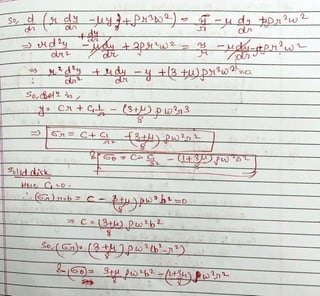 So, d/dr (r dy/dr - μy + ρr³ω²) = y/r - μ dy/dr + ρr²ω²
⇒ r d²y/dr² + dy/dr - μ dy/dr + 3ρr²ω² = y/r - μ dy/dr - μρr²ω²
⇒ r² d²y/dr² + r dy/dr - y + (3+μ)ρr³ω² = 0
So, soln is,
y = Cr + C₁ 1/r - (3+μ)/8 ρω²r³
⇒ σr = C + C₁ 1/r² - (3+μ)/8 ρω²r²
& σθ = C - C₁/r² - (1+3μ)/8 ρω²r²
Solid disk
Here C₁ = 0.
∴ (σr)r=b = C - (3+μ)/8 ρω²b² = 0
⇒ C = (3+μ)/8 ρω²b²
So, (σr) = (3+μ)/8 ρω²(b²-r²)
& (σθ) = 3+μ/8 ρω²b² - (1+3μ)/8 ρω²r²